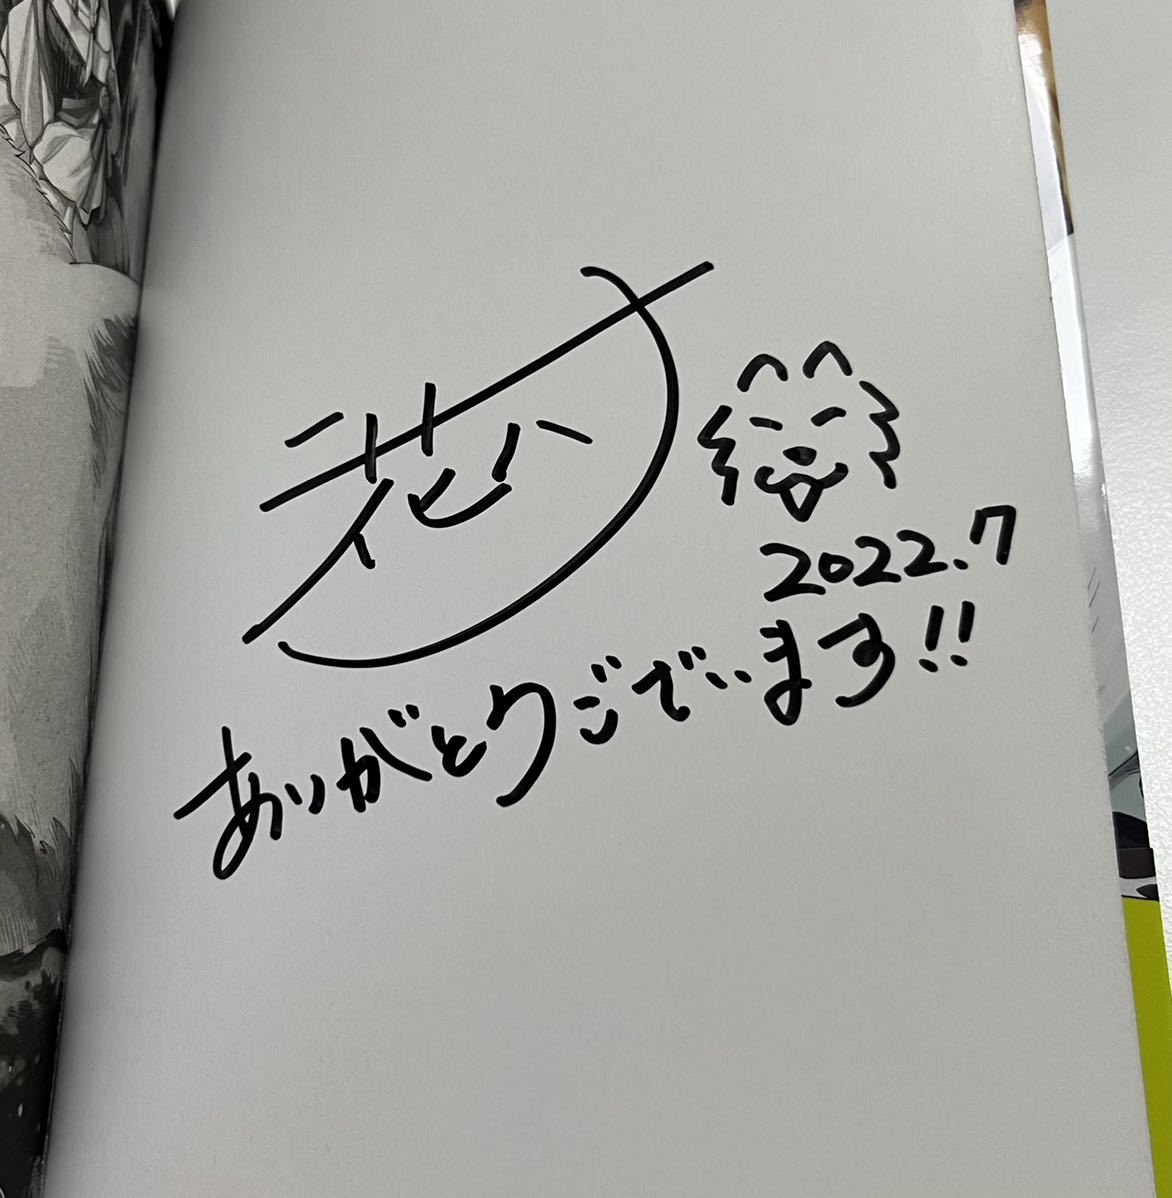 花ハ
2022.7
ありがとうございます!!